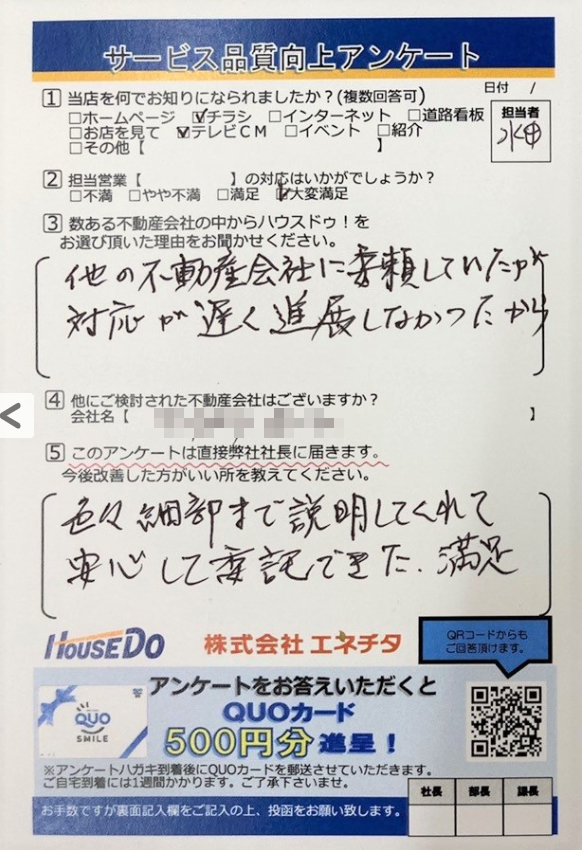 サービス品質向上アンケート
日付 /
1 当店を何でお知りになられましたか？(複数回答可)
□ホームページ ☑チラシ □インターネット □道路看板
□お店を見て ☑テレビCM □イベント □紹介
□その他【 】
担当者
2 担当営業【 】の対応はいかがでしょうか？
□不満 □やや不満 □満足 ☑大変満足
3 数ある不動産会社の中からハウスドゥ！を
お選び頂いた理由をお聞かせください。
他の不動産会社に委頼していたが
対応が遅く進展しなかったから
4 他にご検討された不動産会社はございますか？
会社名【 】
5 このアンケートは直接弊社社長に届きます。
今後改善した方がいい所を教えてください。
色々細部まで説明してくれて
安心して委託できた. 満足
HOUSEDO 株式会社 エネチタ
QRコードからも
ご回答頂けます。
アンケートをお答えいただくと
QUOカード
500円分進呈！
QUO
SMILE
※アンケートハガキ到着後にQUOカードを郵送させていただきます。
ご自宅到着には1週間かかります。ご了承下さいませ。
社長 部長 課長
お手数ですが裏面記入欄をご記入の上、投函をお願い致します。